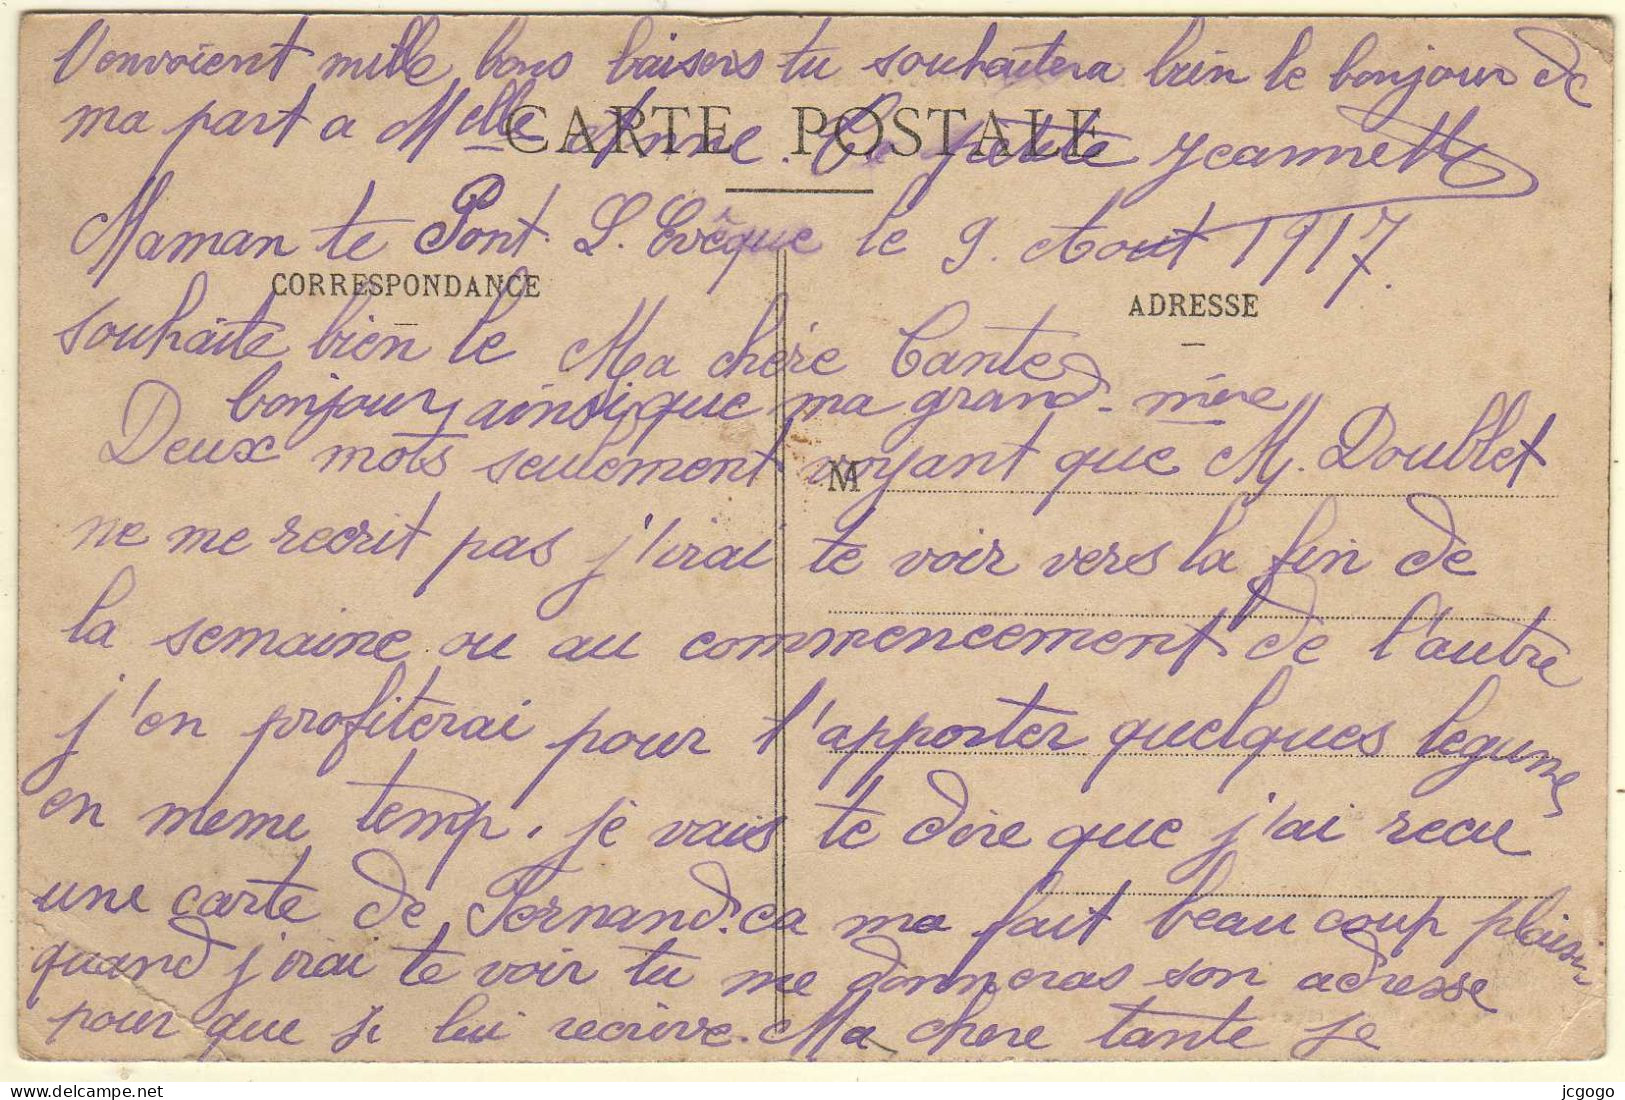 t'envoient mille bons baisers tu souhaitera bien le bonjour de
ma part a Melle Anne. La petite Jeannette
CARTE POSTALE
Maman te Pont. L. Evêque le 9. Aout 1917.
CORRESPONDANCE
ADRESSE
souhaite bien le Ma chére Tante
bonjour ainsi que ma grand-mère
Deux mots seulement voyant que M. Doublet
M
ne me recrit pas j'irai te voir vers la fin de
la semaine ou au commencement de l'autre
j'en profiterai pour t'apporter quelques legumes
en meme temp. je vais te dire que j'ai recu
une carte de Fernand. ca ma fait beaucoup plaisir
quand j'irai te voir tu me donneras son adresse
pour que je lui recrive. Ma chere tante je
jcgogo